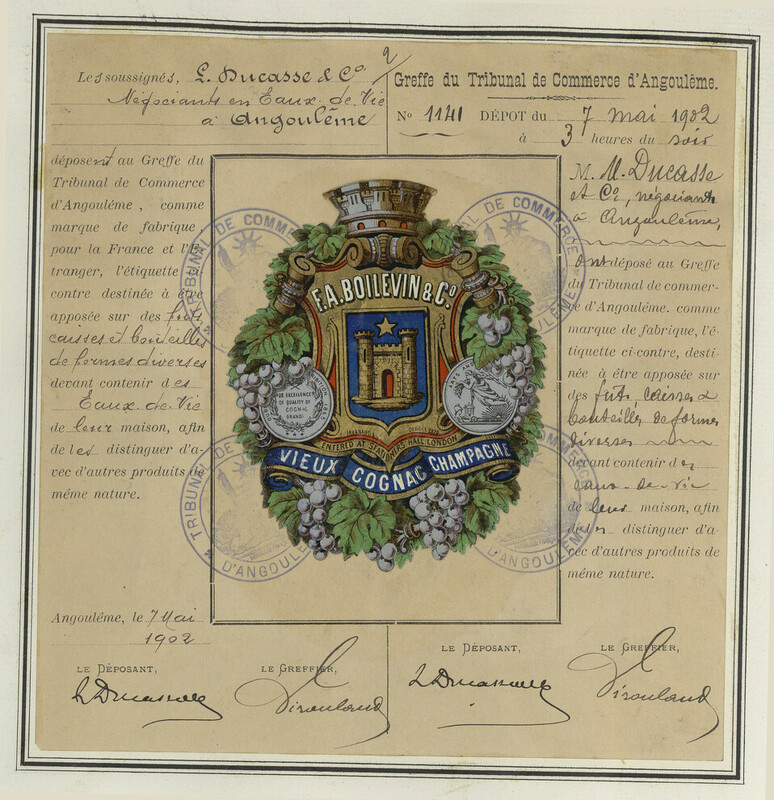 2
Les soussignés, L. Ducasse & Co
Négociants en Eaux-de-Vie
à Angoulême
déposent au Greffe du
Tribunal de Commerce
d'Angoulême, comme
marque de fabrique,
pour la France et l'E-
tranger, l'étiquette ci-
contre destinée à être
apposée sur des fûts
caisses et bouteilles
de formes diverses
devant contenir des
Eaux-de-Vie
de leur maison, afin
de les distinguer d'a-
vec d'autres produits de
même nature.
Angoulême, le 7 Mai
1902
LE DÉPOSANT,
LE GREFFIER,
L Ducasse & Co
Greffe du Tribunal de Commerce d'Angoulême.
No 1141 DÉPOT du 7 mai 1902
à 3 heures du soir
M. M. Ducasse
et Co, négociants
à Angoulême,
ont déposé au Greffe
du Tribunal de commer-
ce d'Angoulême. comme
marque de fabrique, l'é-
tiquette ci-contre, desti-
née à être apposée sur
des fûts, caisses &
bouteilles de formes
diverses
devant contenir des
eaux-de-vie
de leur maison, afin
de les distinguer d'a-
vec d'autres produits de
même nature.
LE DÉPOSANT,
LE GREFFIER,
L Ducasse & Co
F.A. BOILEVIN & Co
FOR EXCELLENCE
OF QUALITY OF
COGNAC
BRANDY
ENTERED AT STATIONERS HALL LONDON
VIEUX COGNAC CHAMPAGNE
TRIBUNAL DE COMMERCE
D'ANGOULÊME
TRIBUNAL DE COMMERCE
D'ANGOULÊME
TRIBUNAL DE COMMERCE
D'ANGOULÊME
COMMERCE
D'ANGOULÊME